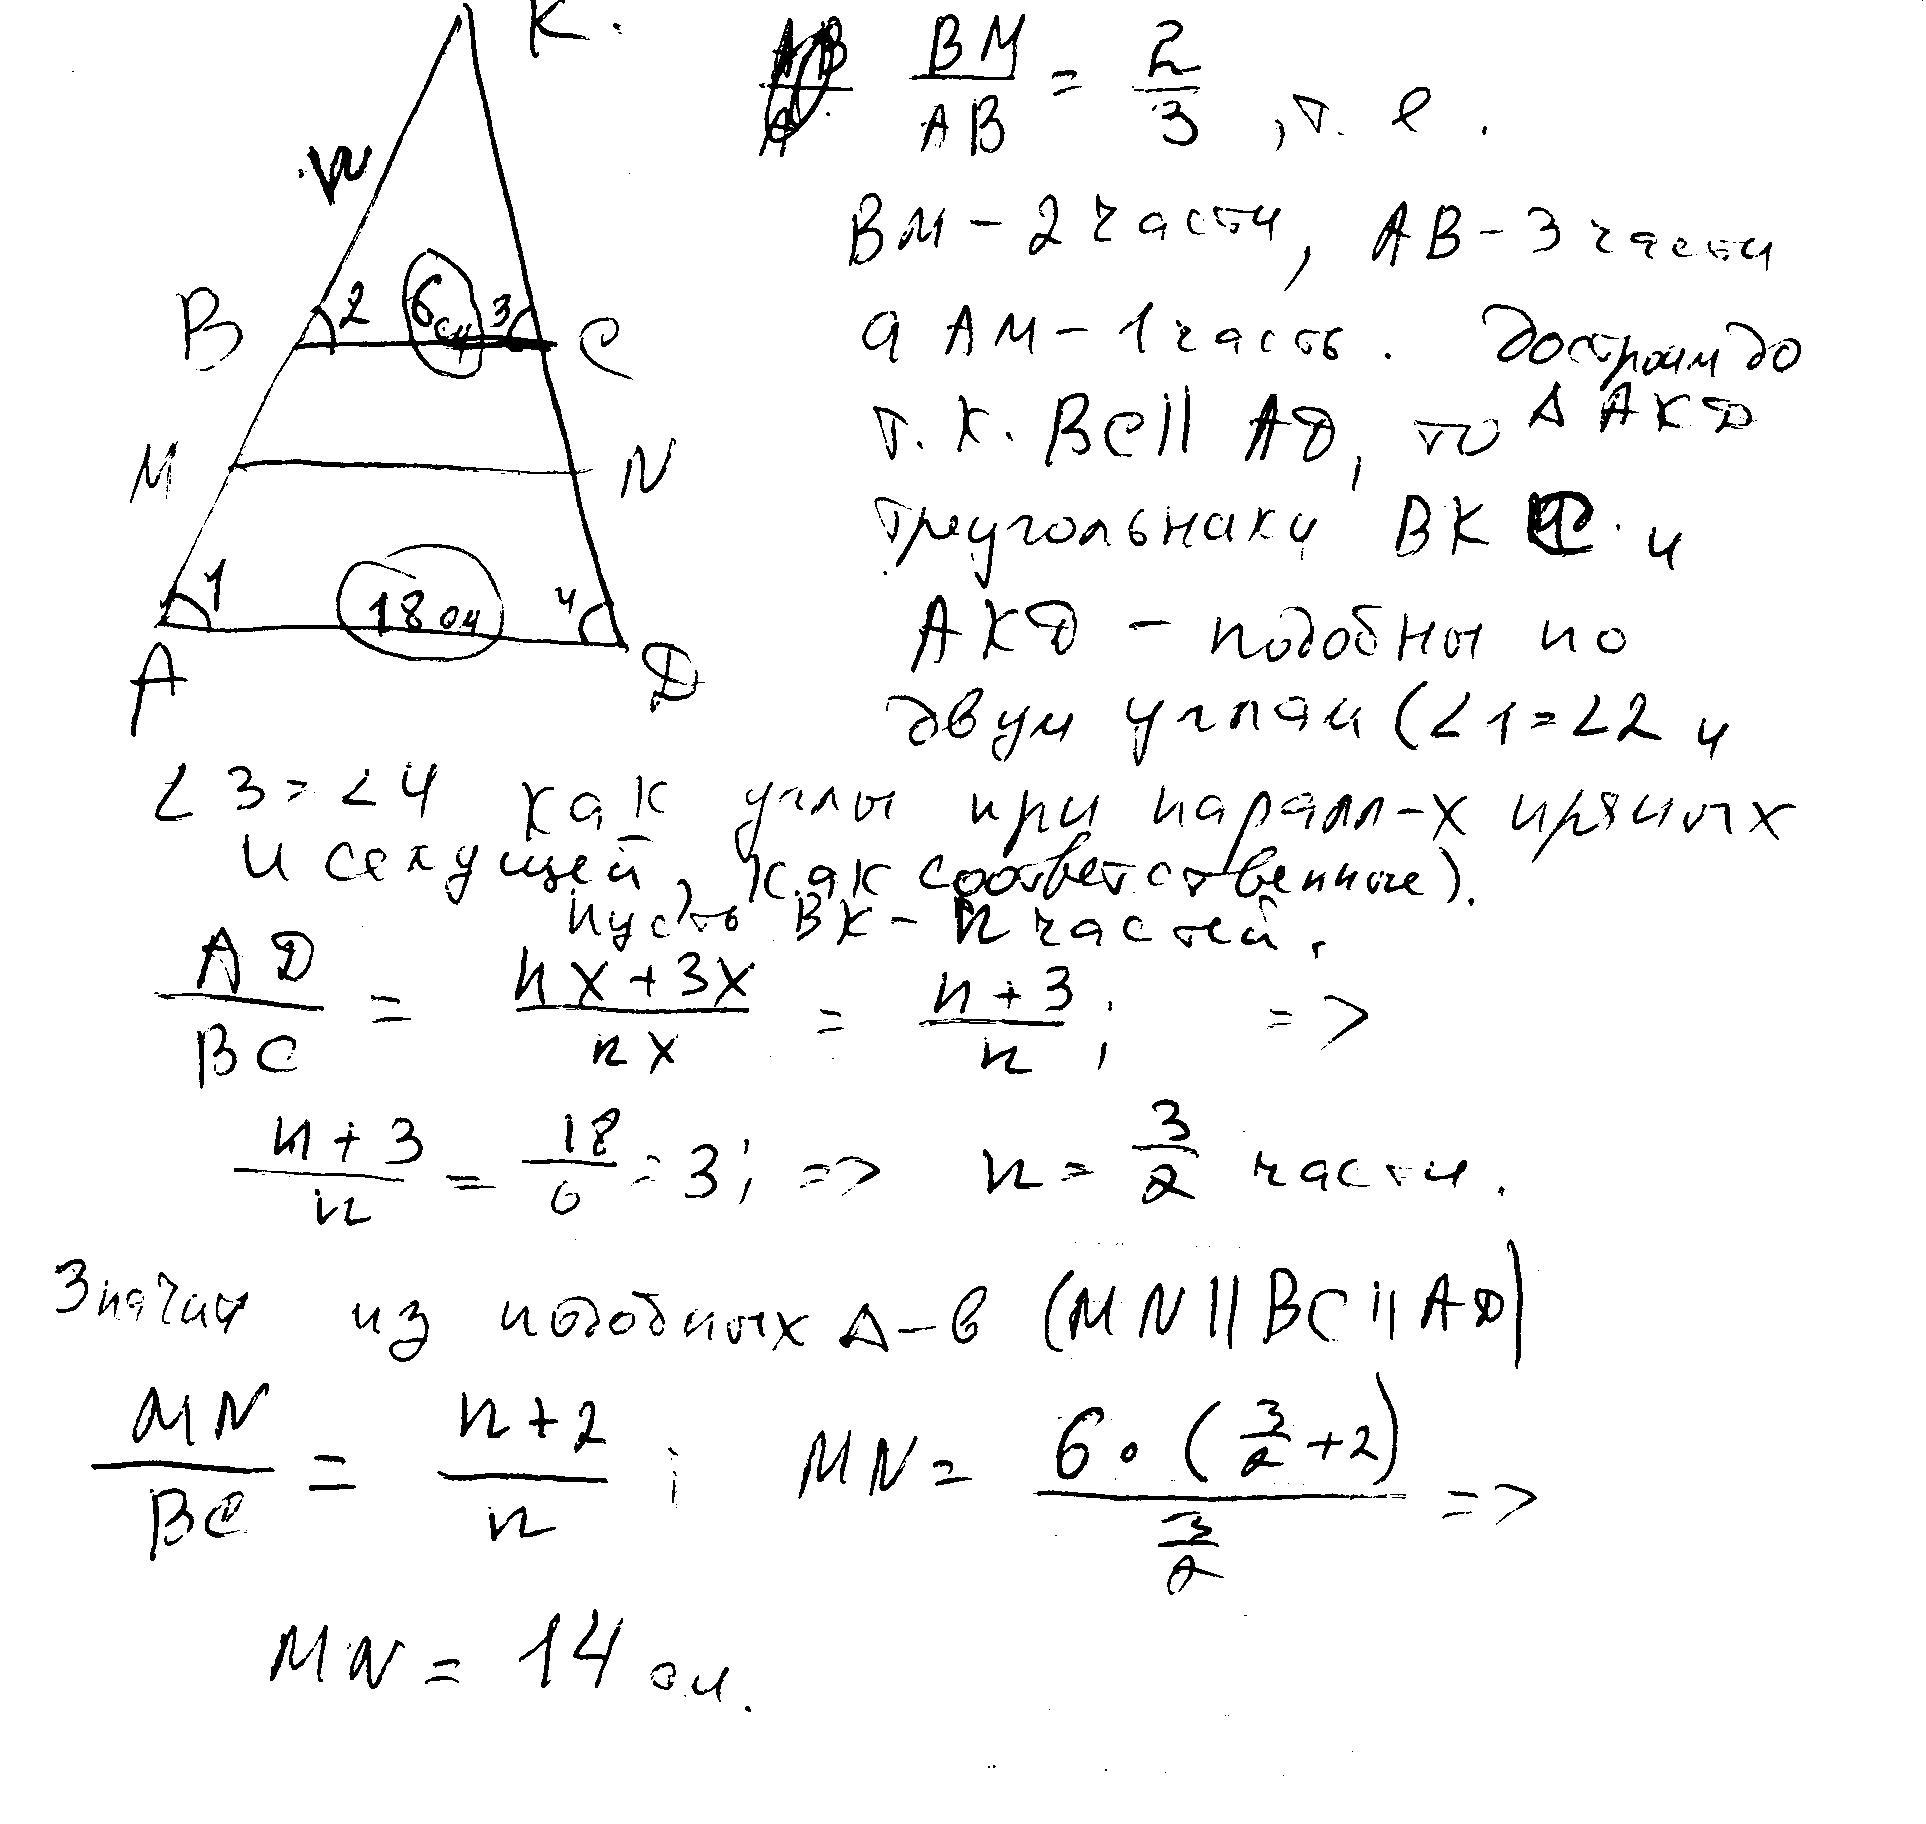 K.
BM/AB = 2/3, т. е.
n
BM – 2 части, AB – 3 части
B 2 6 см 3 C
а AM – 1 часть. достроим до
Δ AKD
т. к. BC || AD, то
M N
треугольники BKC и
1 18 см 4
AKD – подобны по
A D
двум углам (∠1 = ∠2 и
∠3 = ∠4 как углы при паралл-х прямых
и секущей, как соответственные).
пусть BK – n частей.
AD/BC = (nx + 3x)/(nx) = (n + 3)/n; =>
(n + 3)/n = 18/6 = 3; => n = 3/2 части.
Значит из подобных Δ-в (MN || BC || AD)
MN/BC = (n + 2)/n; MN = (6 · (3/2 + 2))/(3/2) =>
MN = 14 см.